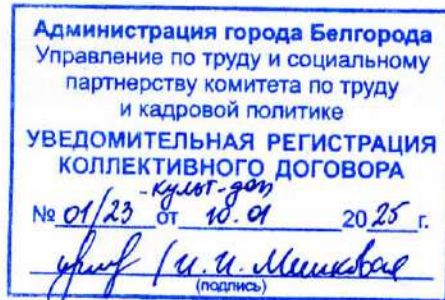 Администрация города Белгорода
Управление по труду и социальному
партнерству комитета по труду
и кадровой политике
УВЕДОМИТЕЛЬНАЯ РЕГИСТРАЦИЯ
КОЛЛЕКТИВНОГО ДОГОВОРА
№ 01/23 от 10.01 2025 г.
(подпись)